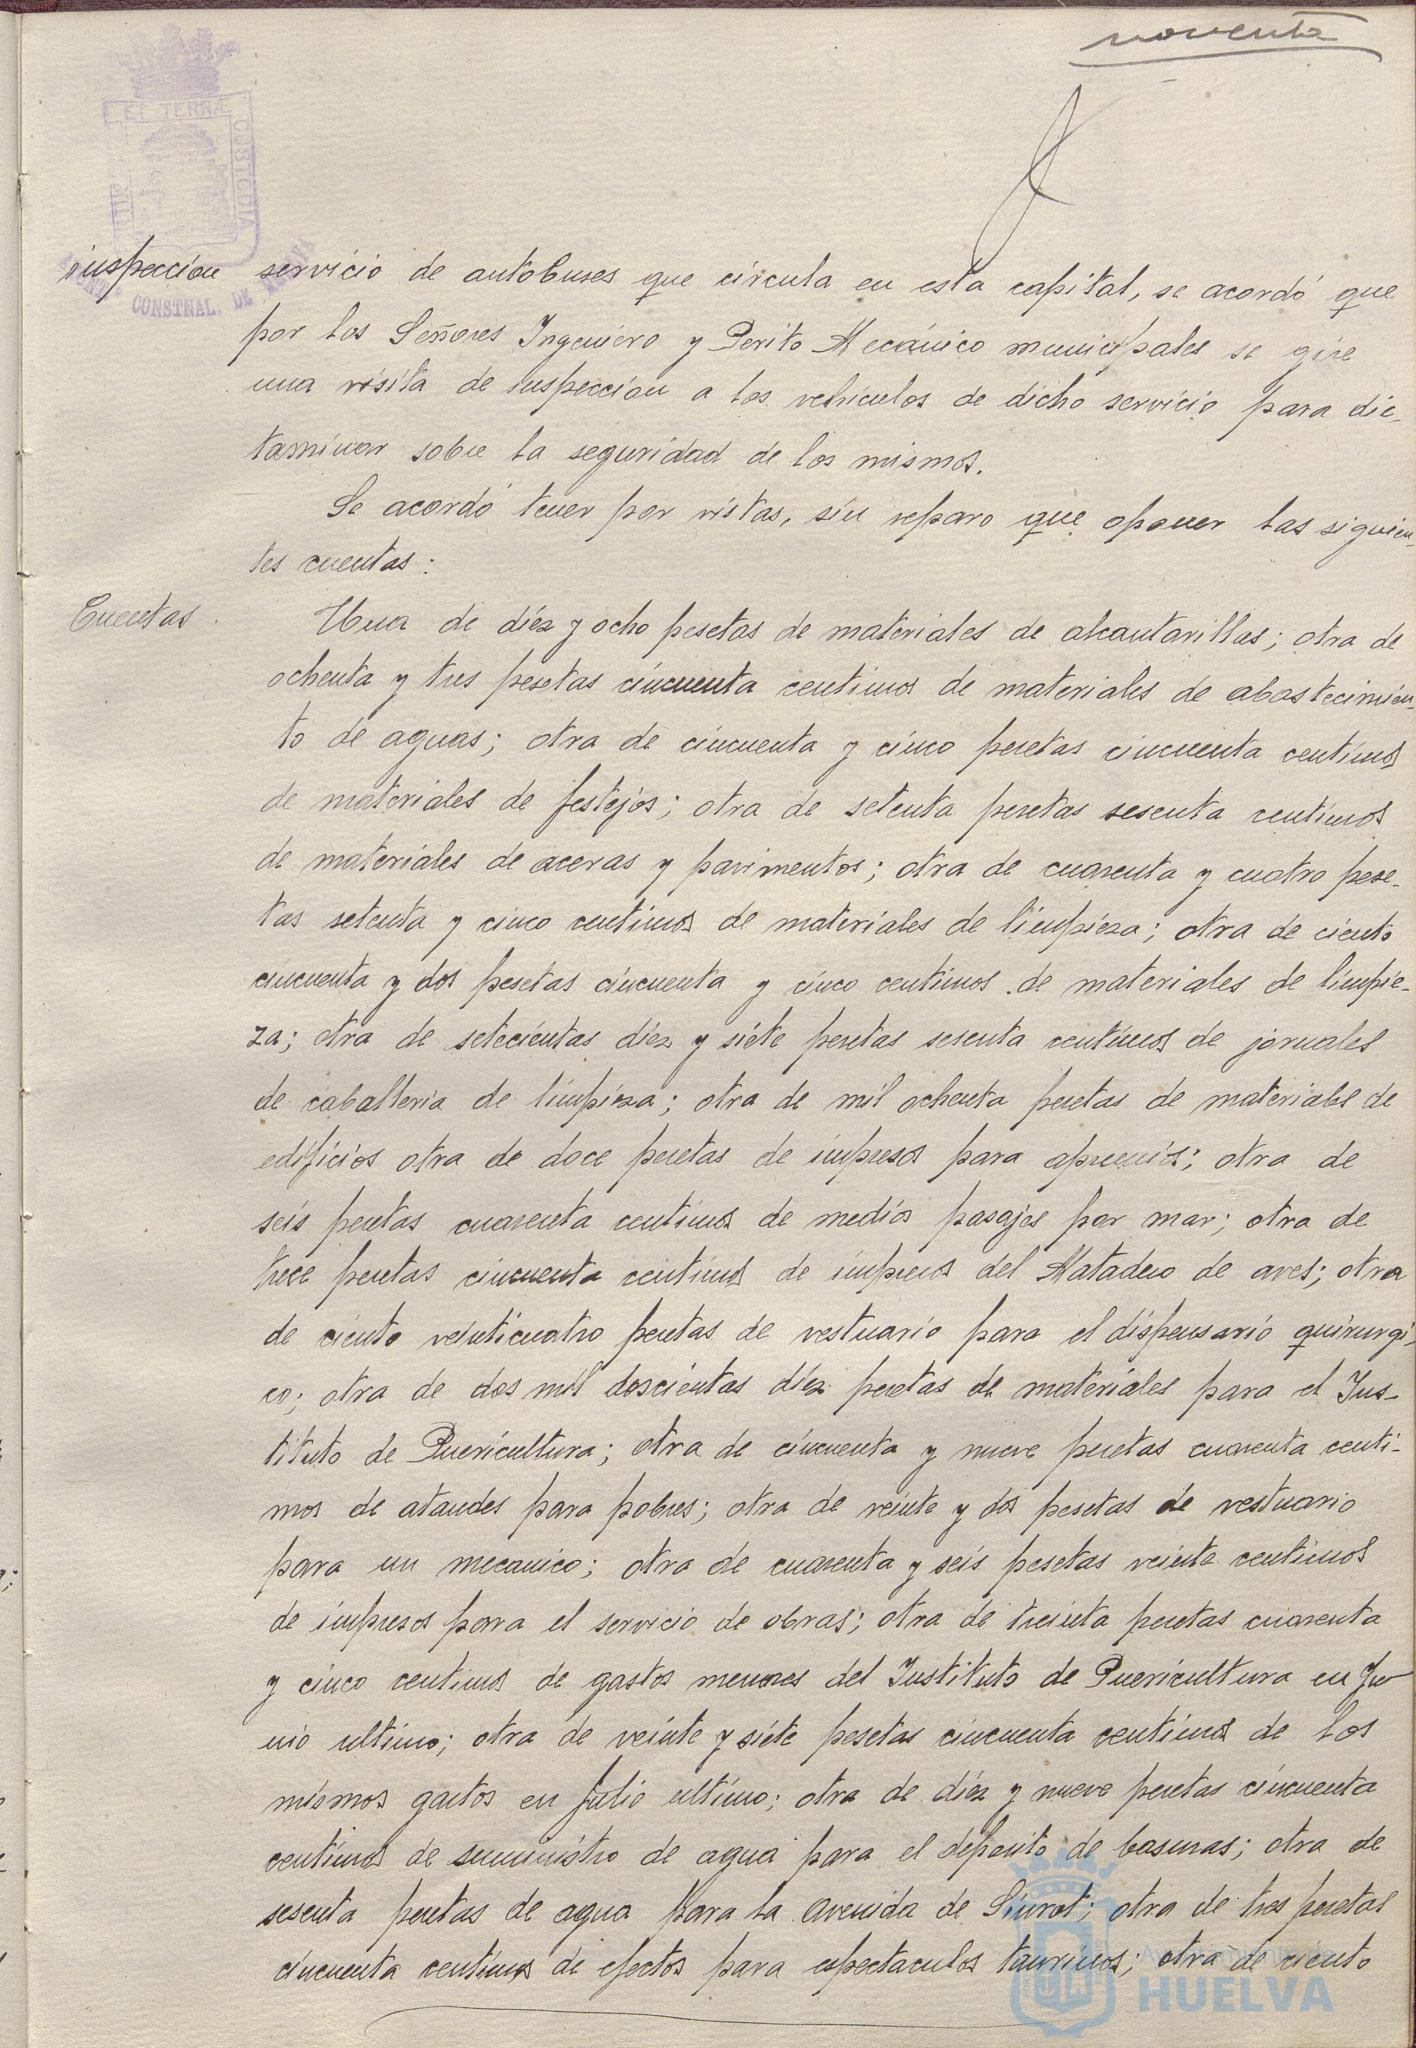 noventa
ET TERRÆ
CUSTODIA
CONSTNAL. DE
inspección
servicio de autobuses que circula en esta capital, se acordó que
por los Señores Ingeniero y Perito Mecánico municipales se gire
una visita de inspección a los vehículos de dicho servicio para dic-
taminar sobre la seguridad de los mismos.
Se acordó tener por vistas, sin reparo que oponer las siguien-
tes cuentas:
Cuentas
Una de diéz y ocho pesetas de materiales de alcantarillas; otra de
ochenta y tres pesetas cincuenta centimos de materiales de abastecimien-
to de aguas; otra de cincuenta y cinco pesetas cincuenta centimos
de materiales de festejos; otra de setenta pesetas sesenta centimos
de materiales de aceras y pavimentos; otra de cuarenta y cuatro pese-
tas setenta y cinco centimos de materiales de limpieza; otra de ciento
cincuenta y dos pesetas cincuenta y cinco centimos de materiales de limpie-
za; otra de setecientas diéz y siéte pesetas sesenta centimos de jornales
de caballeria de limpieza; otra de mil ochenta pesetas de materiales de
edificios otra de doce pesetas de impresos para apremios; otra de
seis pesetas cuarenta centimos de medios pasajes por mar; otra de
trece pesetas cincuenta centimos de impresos del Matadero de aves; otra
de ciento veinticuatro pesetas de vestuario para el dispensario quirurgi-
co; otra de dos mil doscientas diéz pesetas de materiales para el Ins-
tituto de Puericultura; otra de cincuenta y nueve pesetas cuarenta centi-
mos de ataudes para pobres; otra de veinte y dos pesetas de vestuario
para un mecanico; otra de cuarenta y seis pesetas veinte centimos
de impresos para el servicio de obras; otra de treinta pesetas cuarenta
y cinco centimos de gastos menores del Instituto de Puericultura en Ju
nio ultimo; otra de veinte y siéte pesetas cincuenta centimos de los
mismos gastos en Julio ultimo; otra de diéz y nueve pesetas cincuenta
centimos de suministro de agua para el deposito de basuras; otra de
sesenta pesetas de agua para la Avenida de Siurot; otra de tres pesetas
cincuenta centimos de efectos para espectaculos taurinos; otra de ciento
Ayuntamiento de
HUELVA